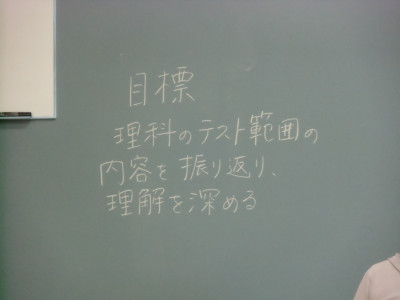 目標
理科のテスト範囲の
内容を振り返り、
理解を深める